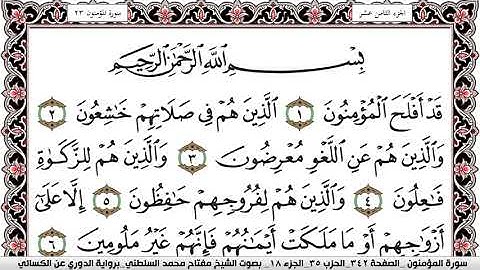 الجزء الثامن عشر
سورة المؤمنون ٢٣
بِسْمِ اللَّهِ الرَّحْمَٰنِ الرَّحِيمِ
قَدْ أَفْلَحَ الْمُؤْمِنُونَ ١ الَّذِينَ هُمْ فِي صَلَاتِهِمْ خَٰشِعُونَ ٢
وَالَّذِينَ هُمْ عَنِ اللَّغْوِ مُعْرِضُونَ ٣ وَالَّذِينَ هُمْ لِلزَّكَوٰةِ
فَٰعِلُونَ ٤ وَالَّذِينَ هُمْ لِفُرُوجِهِمْ حَٰفِظُونَ ٥ إِلَّا عَلَىٰ
أَزْوَٰجِهِمْ أَوْ مَا مَلَكَتْ أَيْمَٰنُهُمْ فَإِنَّهُمْ غَيْرُ مَلُومِينَ ٦
سورة المؤمنون _ الصفحة ٣٤٢ _ الحزب ٣٥ _ الجزء ١٨ _ بصوت الشيخ مفتاح محمد السلطني _ برواية الدوري عن الكسائي